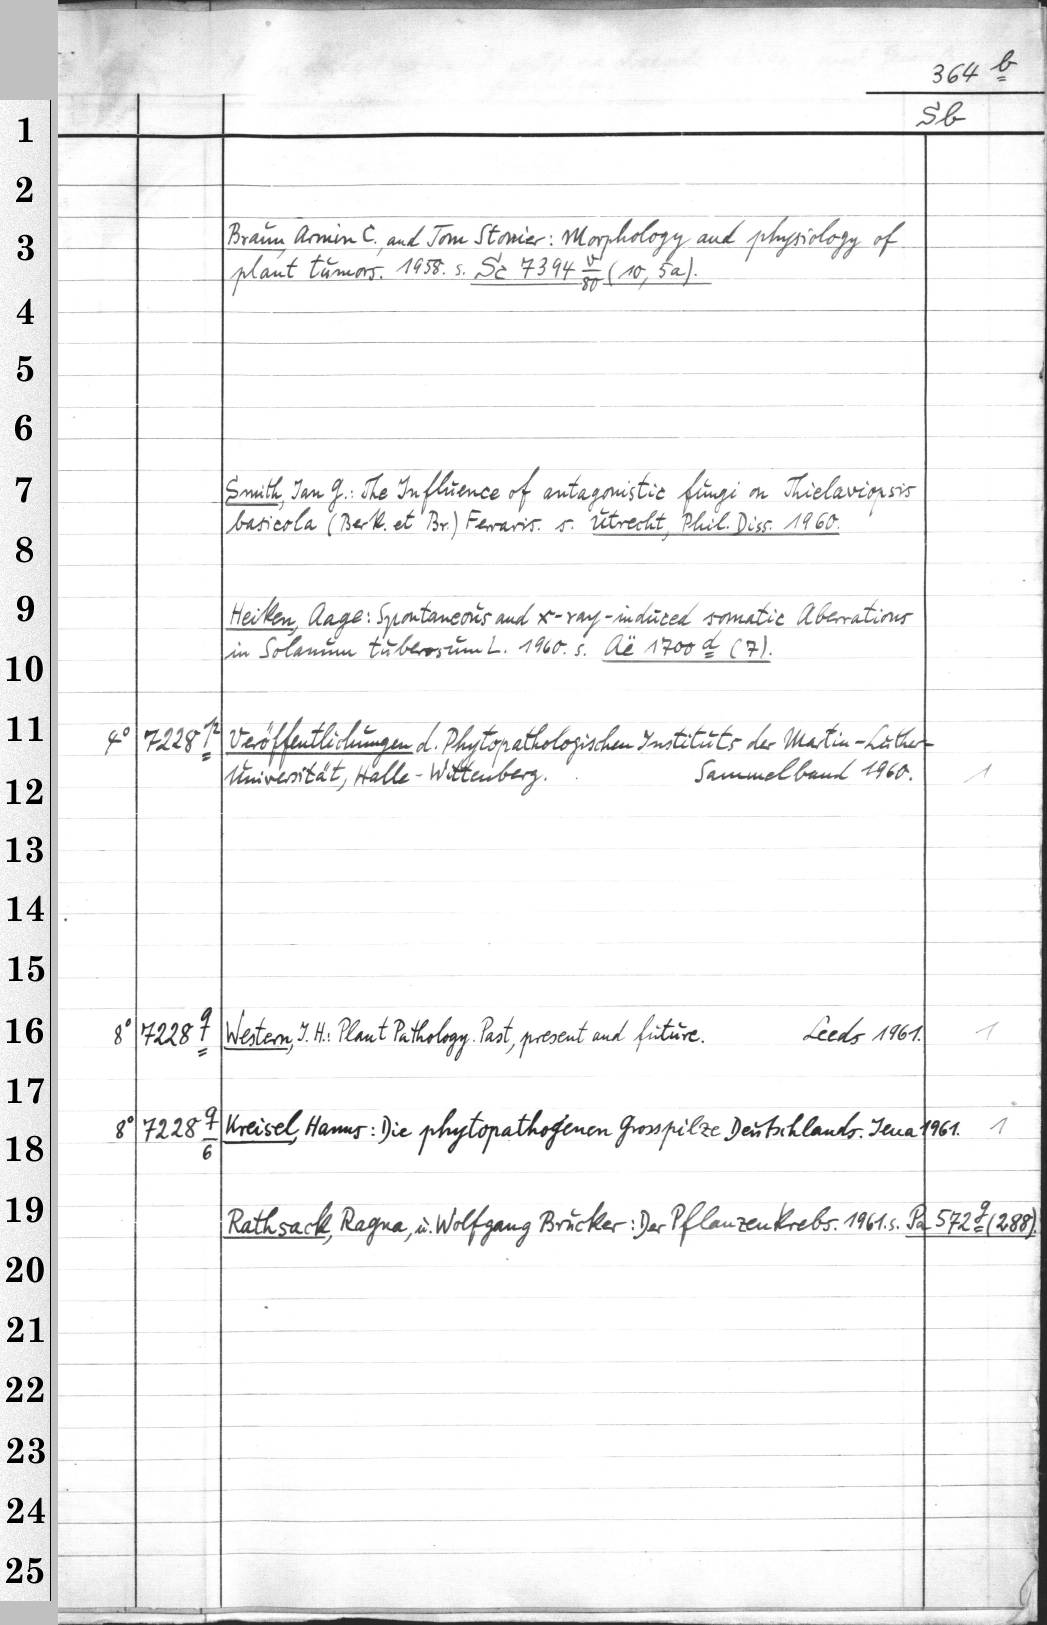 364 b
Sb
1
2
3
Braun, Armin C., and Tom Stonier: Morphology and physiology of
plant tumors. 1958. s. Sc 7394 v/80 (10, 5a).
4
5
6
7
Smith, Jan G.: The Influence of antagonistic fungi on Thielaviopsis
basicola (Berk. et Br.) Ferraris. s. Utrecht, Phil. Diss. 1960.
8
9
Heiken, Aage: Spontaneous and x-ray-induced somatic Aberrations
in Solanum tuberosum L. 1960. s. Aë 1700 d (7).
10
11
4° 7228 p Veröffentlichungen d. Phytopathologischen Instituts der Martin-Luther-
Universität, Halle-Wittenberg. Sammelband 1960. 1
12
13
14
15
16
8° 7228 q Western, J. H.: Plant Pathology. Past, present and future. Leeds 1961. 1
17
8° 7228 q/6 Kreisel, Hanns: Die phytopathogenen Grosspilze Deutschlands. Jena 1961. 1
18
19
Rathsack, Ragna, u. Wolfgang Brücker: Der Pflanzenkrebs. 1961. s. Pa 572 g (288).
20
21
22
23
24
25